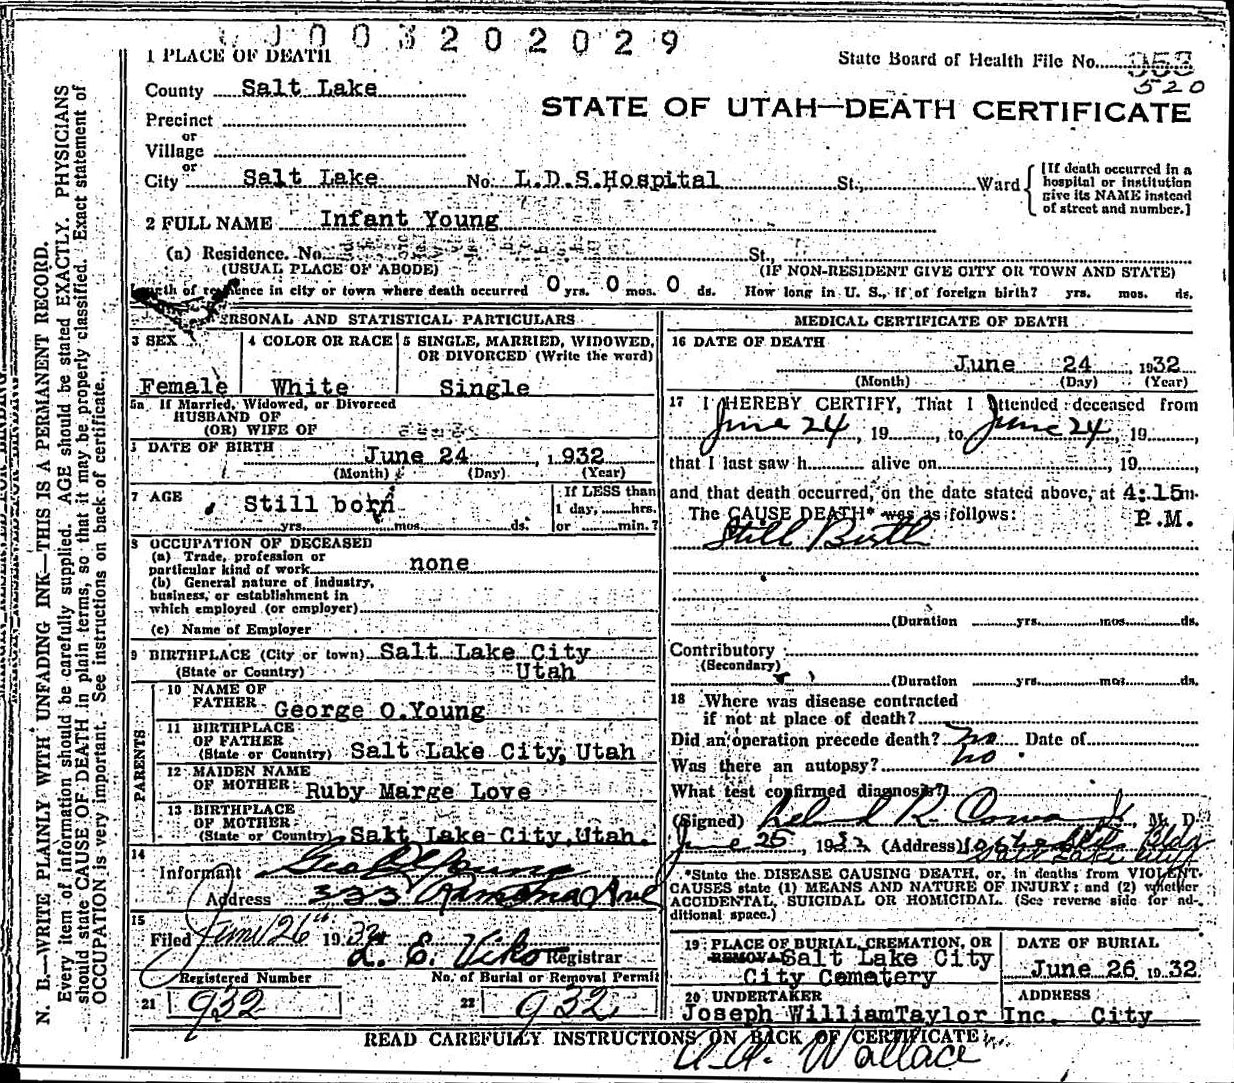 0003202029
1 PLACE OF DEATH
State Board of Health File No. 953
520
County Salt Lake
STATE OF UTAH—DEATH CERTIFICATE
Precinct
or
Village
or
City Salt Lake No. L.D.S.Hospital St., Ward
[If death occurred in a
hospital or institution
give its NAME instead
of street and number.]
2 FULL NAME Infant Young
(a) Residence. No. St.,
(USUAL PLACE OF ABODE) (IF NON-RESIDENT GIVE CITY OR TOWN AND STATE)
Length of residence in city or town where death occurred 0 yrs. 0 mos. 0 ds. How long in U. S., if of foreign birth? yrs. mos. ds.
PERSONAL AND STATISTICAL PARTICULARS
3 SEX
Female
4 COLOR OR RACE
White
5 SINGLE, MARRIED, WIDOWED,
OR DIVORCED (Write the word)
Single
5a If Married, Widowed, or Divorced
HUSBAND OF
(OR) WIFE OF
DATE OF BIRTH
June 24, 1932
(Month) (Day) (Year)
7 AGE
Still born
yrs. mos. ds.
If LESS than
1 day, hrs.
or min.?
8 OCCUPATION OF DECEASED
(a) Trade, profession or
particular kind of work none
(b) General nature of industry,
business, or establishment in
which employed (or employer)
(c) Name of Employer
9 BIRTHPLACE (City or town) Salt Lake City
(State or Country) Utah
PARENTS
10 NAME OF
FATHER George O.Young
11 BIRTHPLACE
OF FATHER
(State or Country) Salt Lake City, Utah
12 MAIDEN NAME
OF MOTHER Ruby Marge Love
13 BIRTHPLACE
OF MOTHER
(State or Country) Salt Lake City,Utah.
14
Informant Geo O Young
Address 333 Ramona Ave
15
Filed June 26th 1932 L. E. Viko Registrar
Registered Number No. of Burial or Removal Permit
21 932 22 932
MEDICAL CERTIFICATE OF DEATH
16 DATE OF DEATH
June 24, 1932
(Month) (Day) (Year)
17 I HEREBY CERTIFY, That I attended deceased from
June 24, 19, to June 24, 19,
that I last saw h alive on, 19,
and that death occurred, on the date stated above, at 4:15m.
The CAUSE DEATH* was as follows: P.M.
Still Birth
(Duration yrs. mos. ds.
Contributory
(Secondary)
(Duration yrs. mos. ds.
18 Where was disease contracted
if not at place of death?
Did an operation precede death? no Date of
Was there an autopsy? no
What test confirmed diagnosis?
(Signed) Leland R. Jr, M. D.
June 25, 1932 (Address) Bldg
Salt Lake City
*State the DISEASE CAUSING DEATH, or, in deaths from VIOLENT
CAUSES state (1) MEANS AND NATURE OF INJURY; and (2) whether
ACCIDENTAL, SUICIDAL OR HOMICIDAL. (See reverse side for ad-
ditional space.)
19 PLACE OF BURIAL, CREMATION, OR
REMOVAL Salt Lake City
City Cemetery
DATE OF BURIAL
June 26, 1932
20 UNDERTAKER ADDRESS
Joseph WilliamTaylor Inc. City
READ CAREFULLY INSTRUCTIONS ON BACK OF CERTIFICATE
Wallace
N. B.—WRITE PLAINLY WITH UNFADING INK—THIS IS A PERMANENT RECORD.
Every item of information should be carefully supplied. AGE should be stated EXACTLY. PHYSICIANS
should state CAUSE OF DEATH in plain terms, so that it may be properly classified. Exact statement of
OCCUPATION is very important. See instructions on back of certificate.